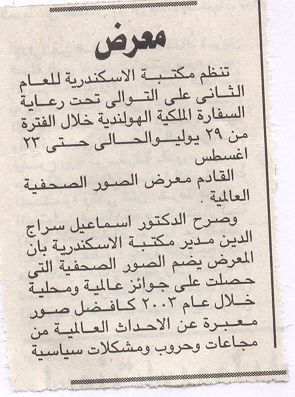 معرض
تنظم مكتبة الاسكندرية للعام
الثانى على التوالى تحت رعاية
السفارة الملكية الهولندية خلال الفترة
من ٢٩ يوليو الحالى حتى ٢٣
اغسطس
القادم معرض الصور الصحفية
العالمية .
وصرح الدكتور اسماعيل سراج
الدين مدير مكتبة الاسكندرية بان
المعرض يضم الصور الصحفية التى
حصلت على جوائز عالمية ومحلية
خلال عام ٢٠٠٣ كافضل صور
معبرة عن الاحداث العالمية من
مجاعات وحروب ومشكلات سياسية